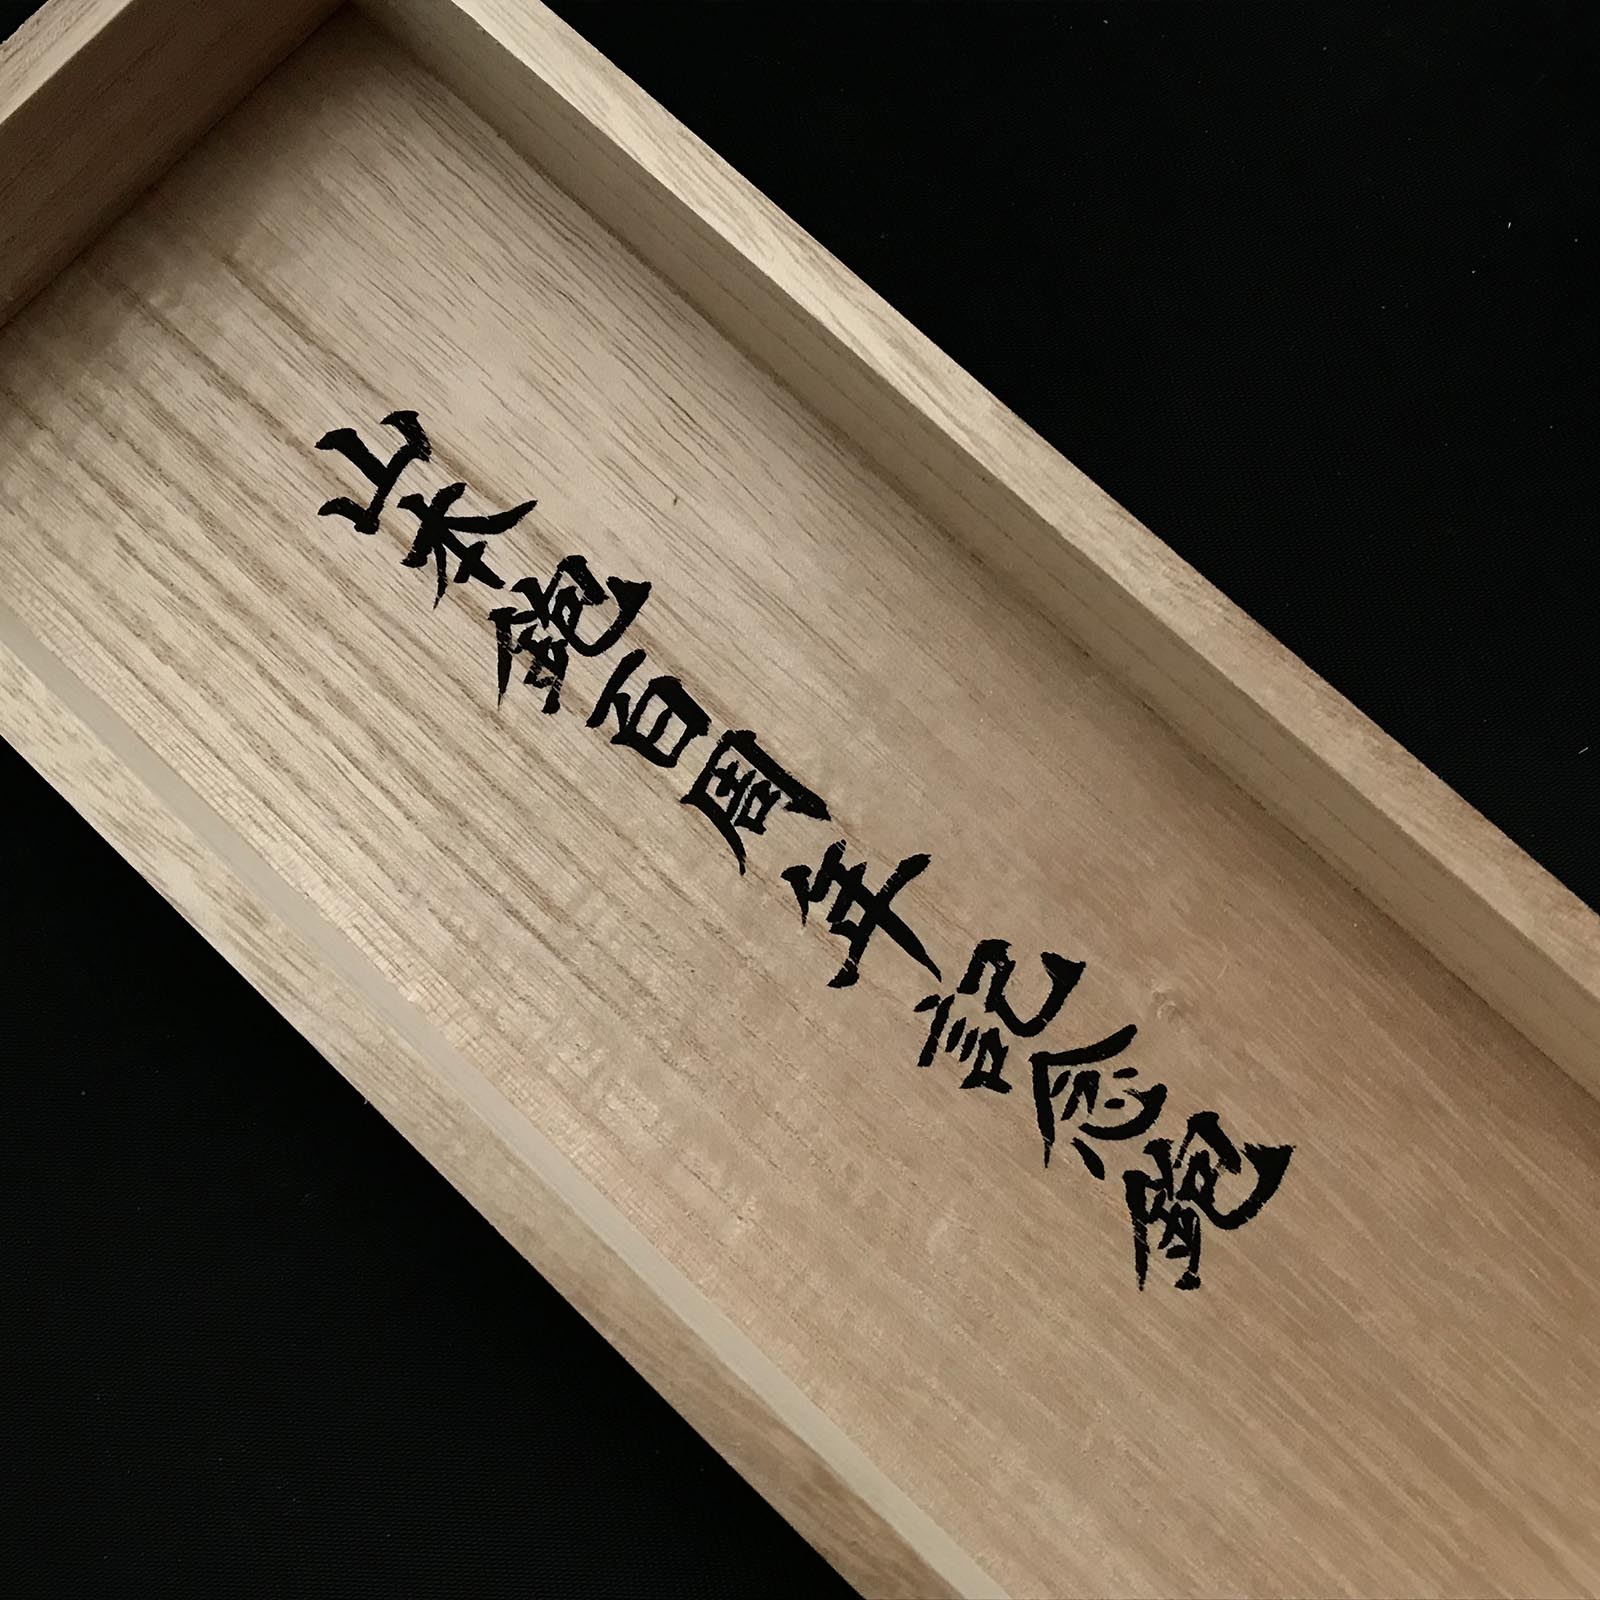 山本鉋百周年記念鉋